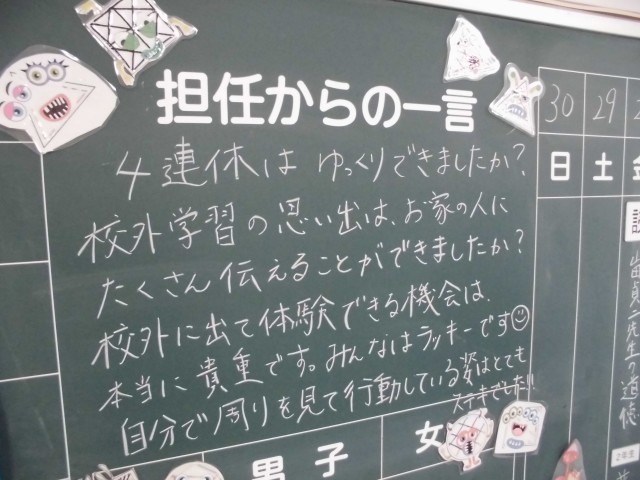 担任からの一言
4連休は ゆっくりできましたか?
校外学習の思い出は、お家の人に
たくさん伝えることができましたか?
校外に出て体験できる機会は、
本当に貴重です。みんなはラッキーです☺
自分で周りを見て行動している姿はとても
ステキでした!!
30 29
日 土
男子 女
2年生